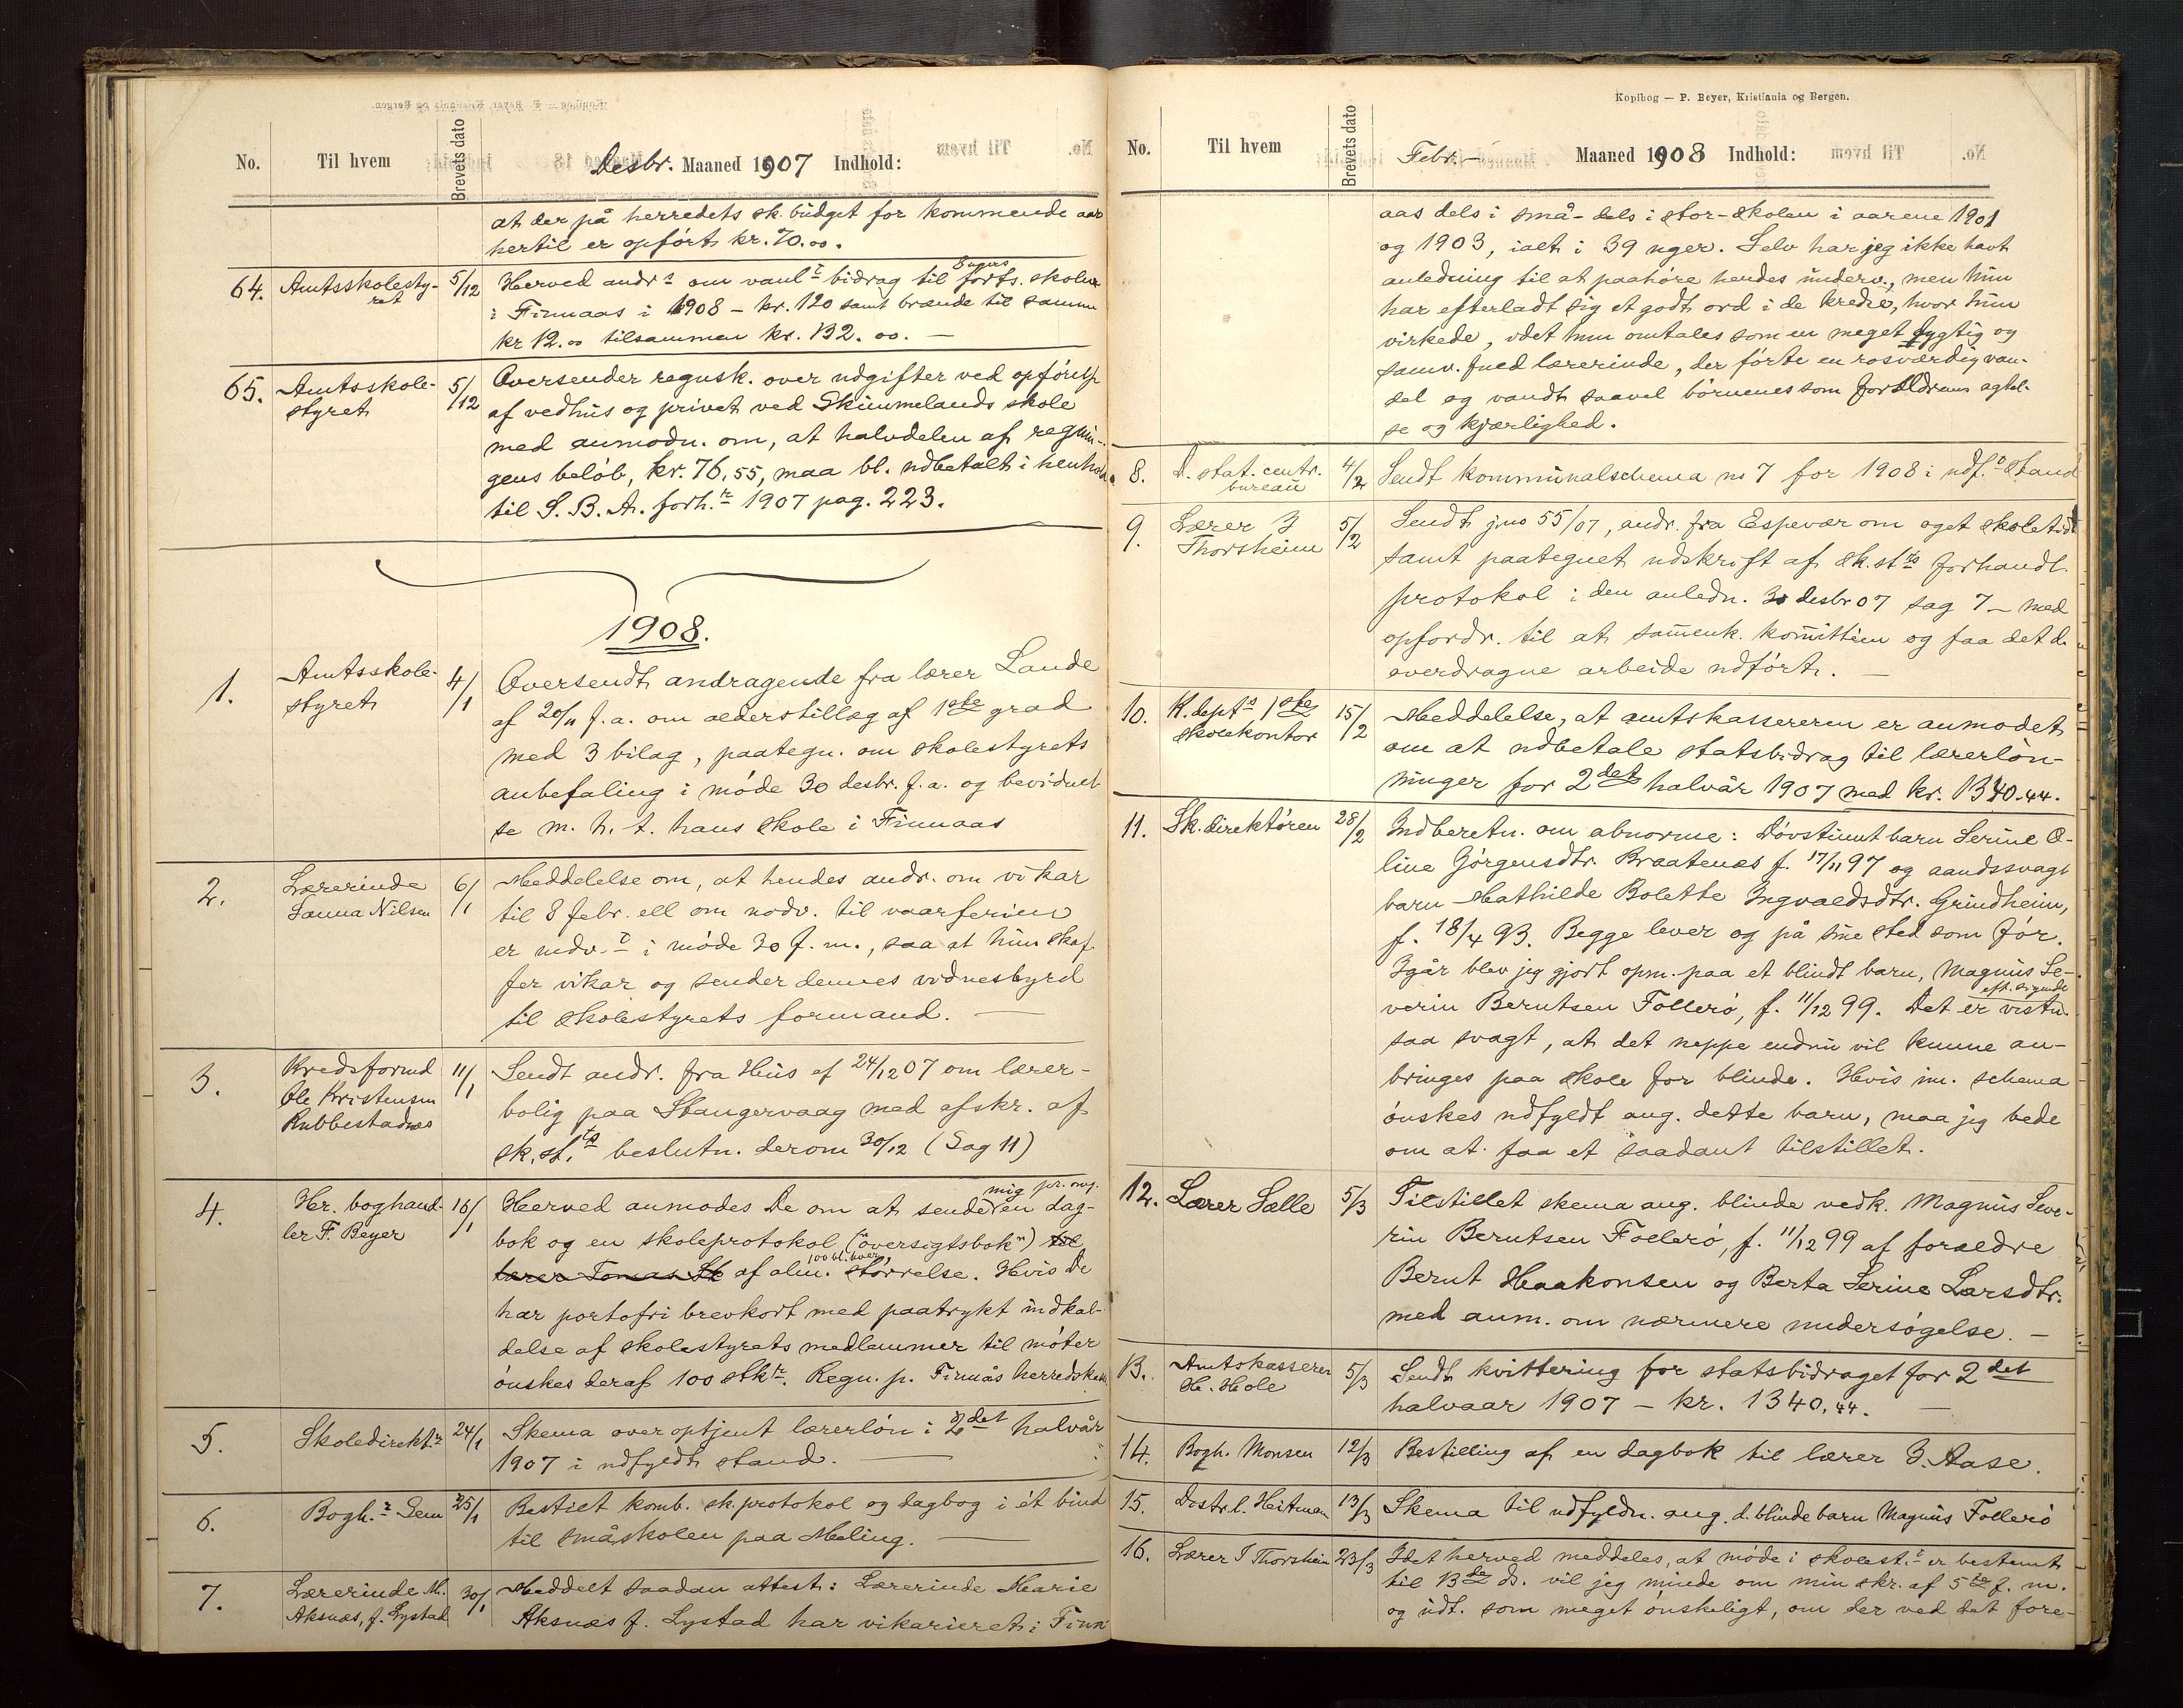 No. Til hvem Brevets dato Desbr. Maaned 1907 Indhold:
at der på herredets sk.budget for kommende aar
hertil er opført kr. 70.00.
64. Amtsskolesty-
ret 5/12 Herved andr. om vanl. bidrag til 8 ugers forts. skoler
i Finnaas i 1908 – kr. 120 samt brænde til samme
kr 12.00 tilsammen kr. 132.00. –
65. Amtsskole-
styret 5/12 Oversender regnsk. over udgifter ved opførelse
af vedhus og privet ved Skimmelands skole
med anmodn. om, at halvdelen af regnin-
gens beløb, kr. 76,55, maa bl. udbetalt i henhold
til S. B. A. forh. 1907 pag. 223.
1908.
1. Amtsskole-
styret 4/1 Oversendt andragende fra lærer Lande
af 20/11 f.a. om alderstillæg af 1ste grad
med 3 bilag, paategn. om skolestyrets
anbefaling i møde 30 desbr. f.a. og bevidnel-
se m. h. t. hans skole i Finnaas
2. Lærerinde
Sanna Nilsen 6/1 Meddelelse om, at hendes andr. om vikar
til 8 febr. ell om nødv. til vaarferien
er indv. i møde 30 f. m., saa at hun skaf-
fer vikar og sender dennes vidnesbyrd
til skolestyrets formand. –
3. Kredsformd
Ole Kristensen
Rubbestadnes 11/1 Sendt andr. fra Hus af 24/12 07 om lærer-
bolig paa Stangervaag med afskr. af
sk.st.ts beslutn. derom 30/12 (Sag 11)
4. Hr. boghand-
ler F. Beyer 16/1 Herved anmodes De om at sende mig pr. omg. en dag-
bok og en skoleprotokol ("oversigtsbok") til
lærer Tomas St af alm. 100 bl. hver, størrelse. Hvis De
har portofri brevkort med paatrykt indkal-
delse af skolestyrets medlemmer til møter
ønskes deraf 100 stkr. Regn. p. Finnås herredskasse
5. Skoledirektr 24/1 Skema over optjent lærerløn i 2det halvår
1907 i udfyldt stand. –
6. Bogh.r Sem 25/1 Bestilt komb. sk.protokol og dagbog i ét bind
til småskolen paa Meling. –
7. Lærerinde M.
Aksnæs, f. Lystad 30/1 Meddelt saadan attest: Lærerinde Marie
Aksnæs f. Lystad har vikarieret i Finn-
Kopibog — F. Beyer, Kristiania og Bergen.
No. Til hvem Brevets dato Febr. – Maaned 1908 Indhold:
aas dels i små- dels i stor-skolen i aarene 1901
og 1903, ialt i 39 uger. Selv har jeg ikke havt
anledning til at paahøre hendes underv., men hun
har efterladt sig et godt ord i de kredse, hvor hun
virkede, idet hun omtales som en meget dygtig og
samv.fuld lærerinde, der førte en rosværdig van-
del og vandt saavel børnenes som forældrenes agtel-
se og kjærlighed.
8. D. stat. centr.
bureau 4/2 Sendt kommunalschema no 7 for 1908 i udf. stand
9. Lærer J
Thorsheim 5/2 Sendt jno 55/07, andr. fra Espevær om øget skoletid
samt paategnet udskrift af sk.st.ts forhandl.
protokol i den anledn. 30 desbr 07 sag 7 – med
opfordr. til at sammenk. komittéen og faa det d.
overdragne arbeide udført. –
10. K.dept.s 1ste
skolekontor 15/2 Meddelelse, at amtskassereren er anmodet
om at udbetale statsbidrag til lærerløn-
ninger for 2det halvår 1907 med kr. 1340.44.
11. Sk.direktøren 28/2 Indberetn. om abnorme: Døvstumt barn Serine O-
line Jørgensdtr. Braatenes f. 17/11 97 og aandssvagt
barn Mathilde Bolette Ingvaldsdtr. Grindheim,
f. 18/4 93. Begge lever og på sme sted som før.
Igår blev jeg gjort opm. paa et blindt barn, Magnus Se-
verin Berntsen Follerø, f. 11/12 99. Det er eft. sigende vistn.
saa svagt, at det neppe endnu vil kunne an-
bringes paa skole for blinde. Hvis nu. schema
ønskes udfyldt ang. dette barn, maa jeg bede
om at faa et saadant tilstillet.
12. Lærer Sælle 5/3 Tilstillet skema ang. blinde vedk. Magnus Seve-
rin Berntsen Follerø, f. 11/12 99 af forældre
Bernt Haakonsen og Berta Serine Larsdtr.
med anm. om nærmere undersøgelse. –
13. Amtskasserer
H. Hole 5/3 Sendt kvittering for statsbidraget for 2det
halvaar 1907 – kr. 1340.44. –
14. Bogh. Monsen 12/3 Bestilling af en dagbok til lærer J. Aase.
15. Distr.l. Heitman 13/3 Skema til udfyldn. ang. d. blinde barn Magnus Follerø
16. Lærer J Thorsheim 23/3 Idet herved meddeles, at møde i skolest. er bestemt
til 13de d. vil jeg minde om min skr. af 5te f. m.
og udt. som meget ønskeligt, om der ved det fore-